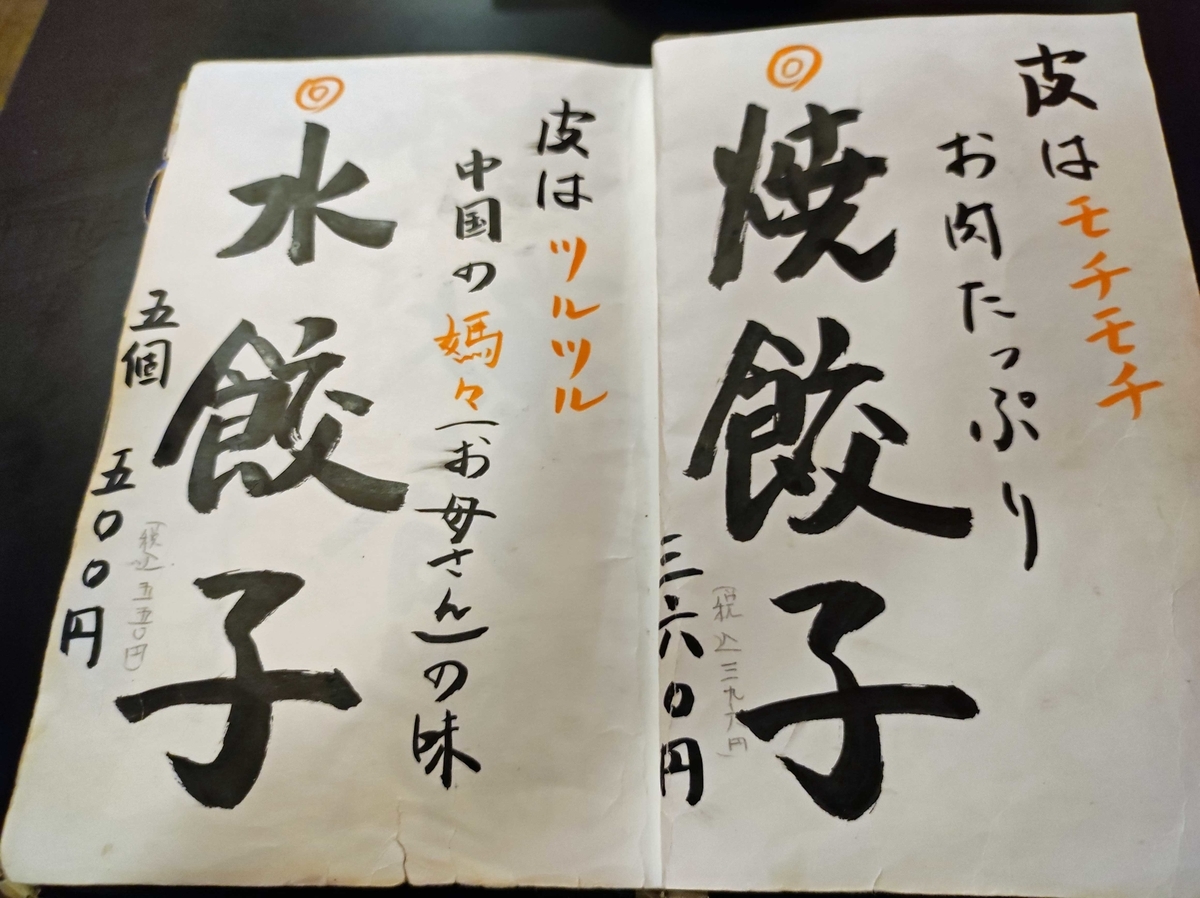 皮はモチモチ
お肉たっぷり
◎焼餃子
(税込三九六円)
三六〇円
皮はツルツル
中国の媽々(お母さん)の味
◎水餃子
(税込五五〇円)
五個 五〇〇円